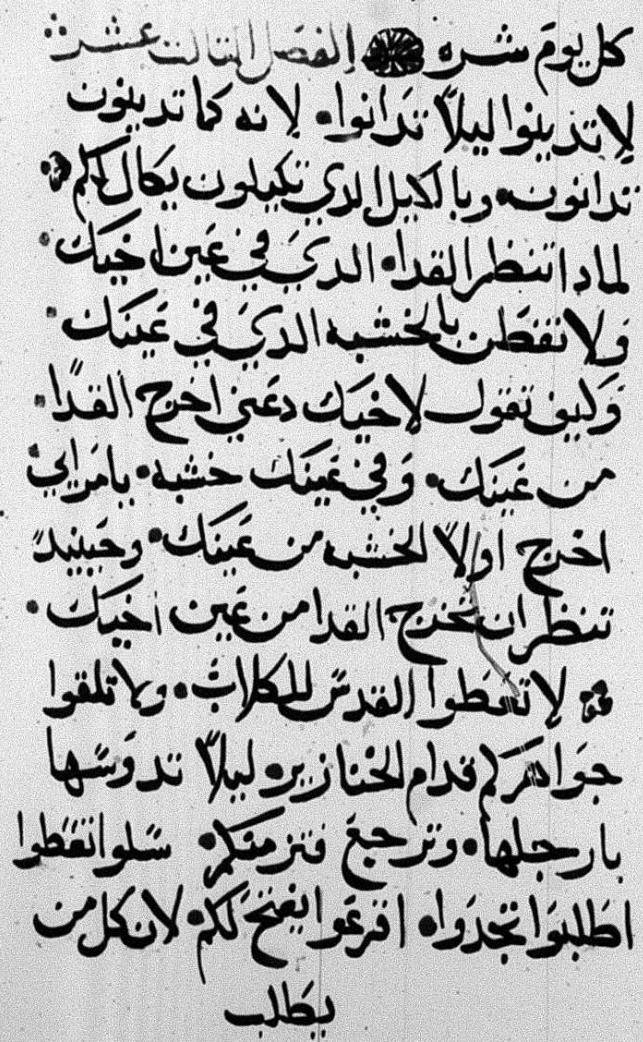 كل يومَ شره الفصل الثالث عشر
لاتدينوا ليلاً تدانوا لانه كما تدينون
تدانون وبالكيل الدي تكيلون يكال لكم
لمادا تنظر القدا الديَ في عَين اخيَك
وَلا تفطن بالخشبه الديَ في عَينَك
وَكيف تقول لاخيَك دعَني اخرج القدَا
من عَينَك وَفي عَينَك خشبه يامرَاي
اخرج اولاً الخشبه من عَينَك وحَينيدً
تنظر ان تخرج القدا من عَين اخيَك
لاتعَطوا القدسَ للكلاب ولا تلقوا
جوَاهرَكم قدام الخنازير ليلاً تدوسَها
بارجلها وترجعَ فتزمنكم سَلوا تعَطوا
اطلبوَا تجدوَا اقرعَوا يفتح لكم لان كل من
يطَلب